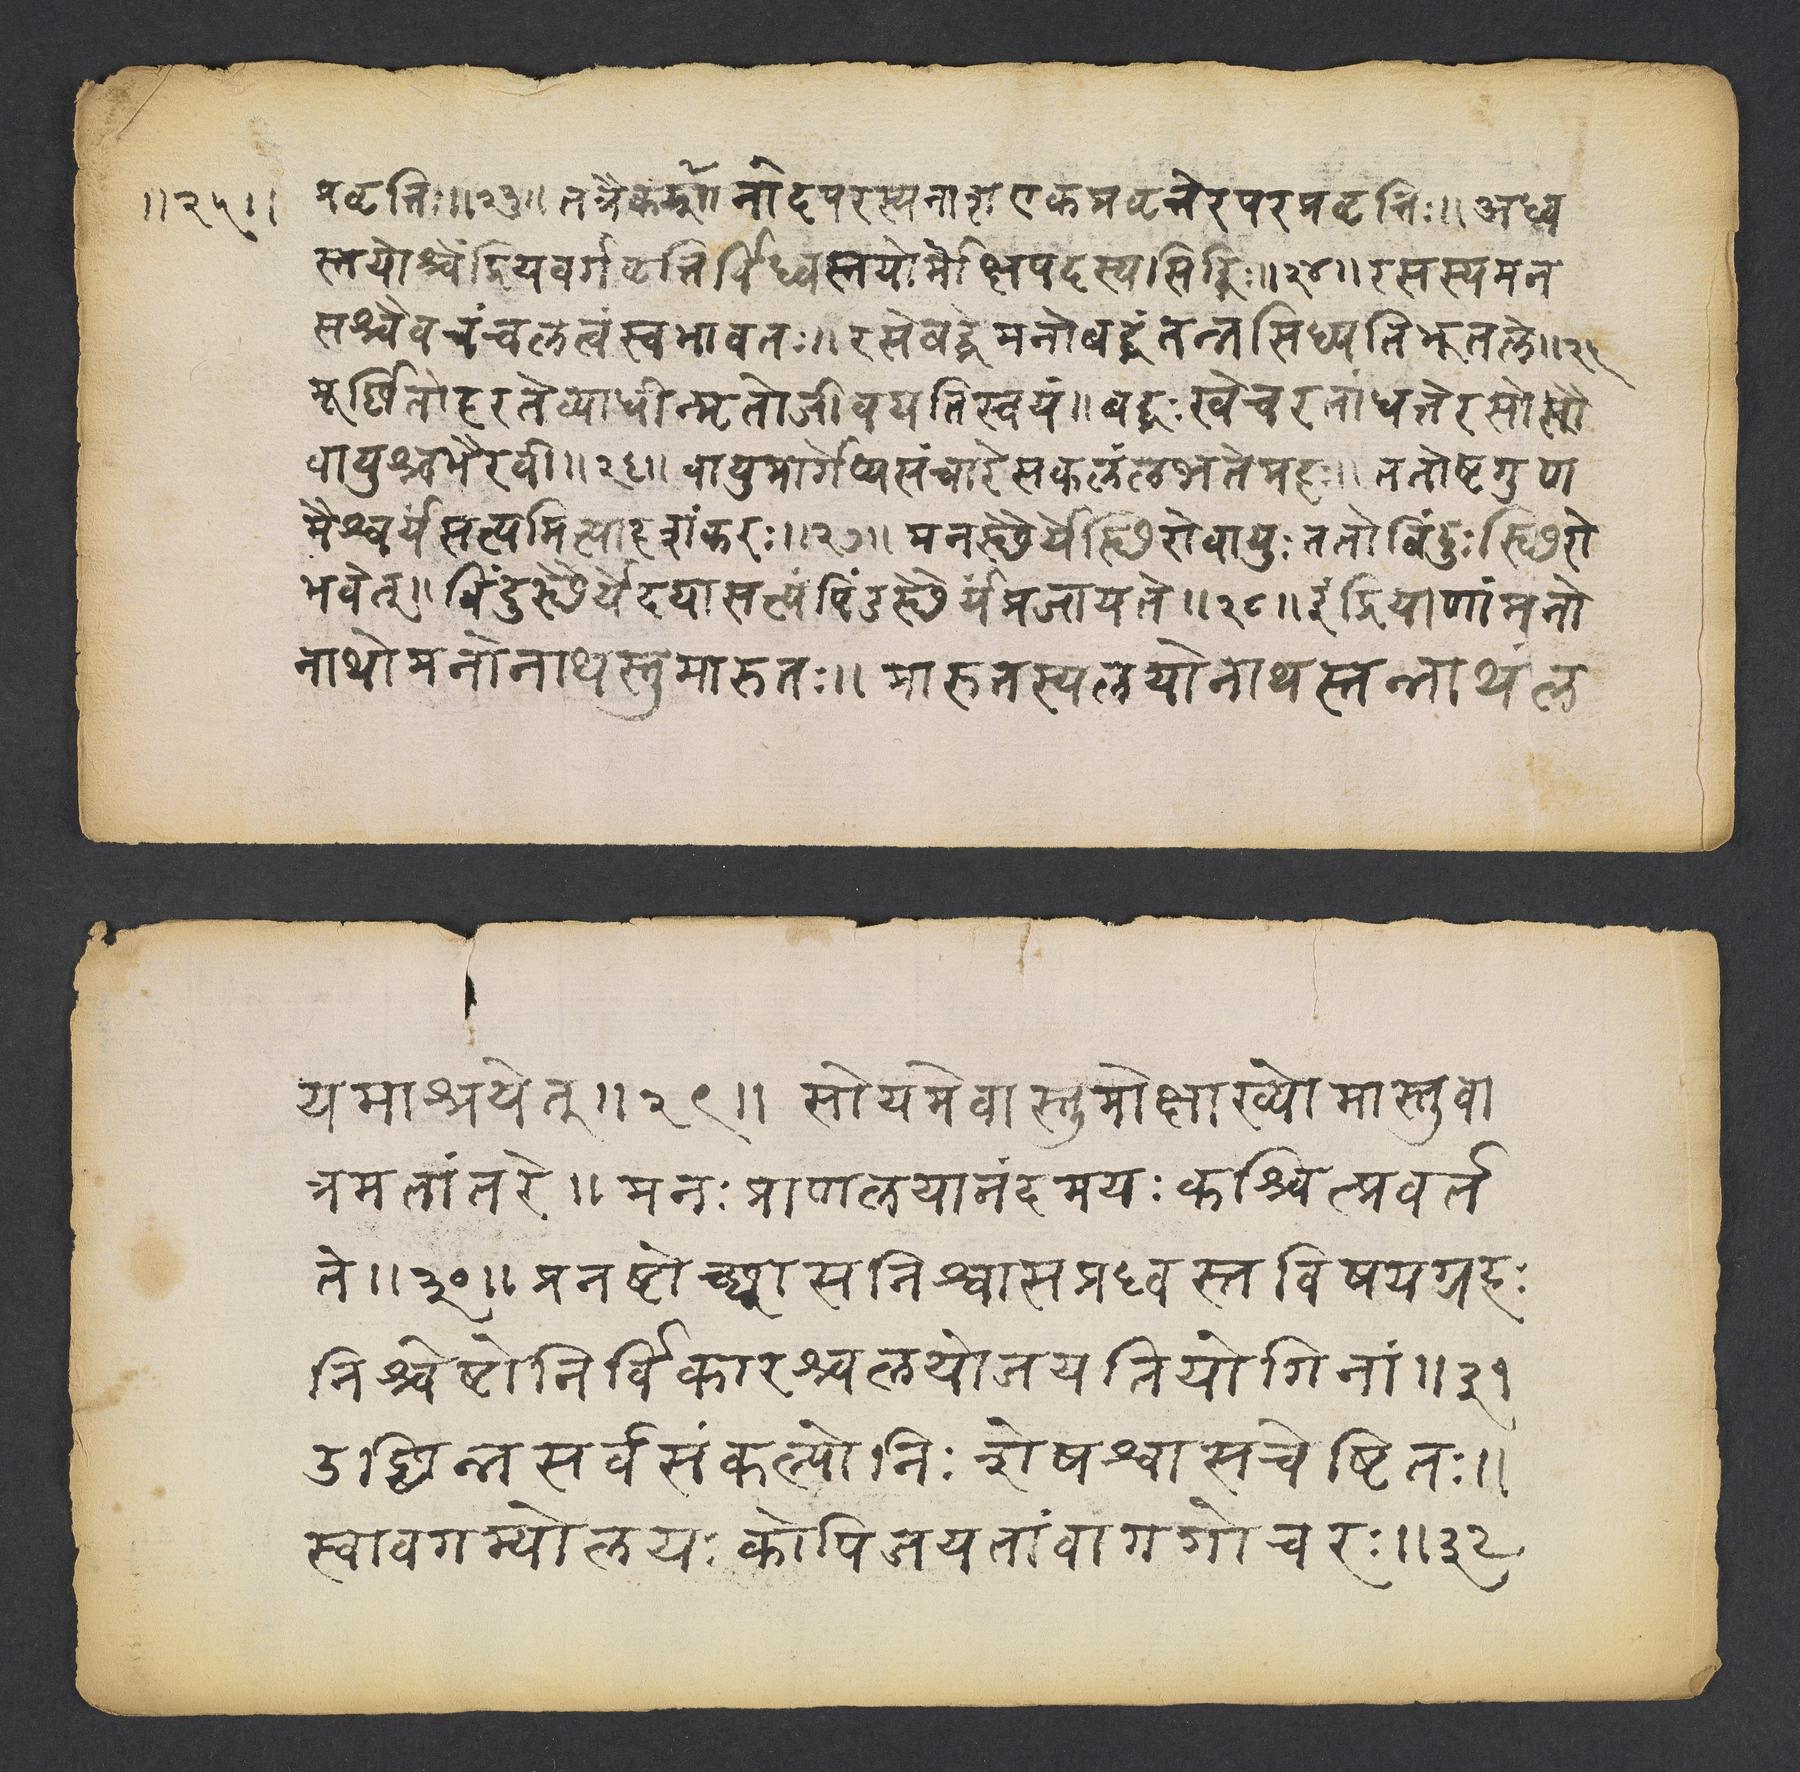 ॥२५॥ प्रवृत्तिः॥२३॥ तत्रैक नादपरस्यनाश एकप्रवृत्तेरपरप्रवृत्तिः॥ अध्व
स्तयोश्चेंद्रियवर्गवृत्तिर्विध्वस्तयोर्मोक्षपदस्यसिद्धिः॥२४॥ रसस्यमन
सश्चैवचंचलत्वंस्वभावतः॥ रसेबद्धेमनोबद्धंतन्नसिध्यतिभूतले॥२५
मूर्छितोहरतेव्याधीन्मृतोजीवयतिस्वयं॥ बद्धःखेचरतांधत्तेरसो
वायुश्चभैरवी॥२६॥ वायुमार्गेप्यसंचारेसकलंलभतेमहः॥ ततोष्टगुण
मैश्वर्यंसत्यमित्याहशंकरः॥२७॥ मनस्थैर्येस्थिरोवायुः ततोबिंदुःस्थिरो
भवेत्॥ बिंदुस्थैर्येदयासत्यंपिंडस्थैर्यंप्रजायते॥२८॥ इंद्रियाणांमनो
नाथोमनोनाथस्तुमारुतः॥ मारुतस्यलयोनाथस्तन्नाथंल
यमाश्रयेत्॥२९॥ सोयमेवास्तुमोक्षाख्योमास्तुवा
त्रमतांतरे॥ मनःप्राणलयानंदमयःकश्चित्प्रवर्त
ते॥३०॥ प्रनष्टोच्छ्वासनिश्वासप्रध्वस्तविषयग्रहः
निश्चेष्टोनिर्विकारश्चलयोजयतियोगिनां॥३१
उछिन्नसर्वसंकल्पोनिःशेषश्वासचेष्टितः॥
स्वावगम्योलयःकोपिजयतांवागगोचरः॥३२